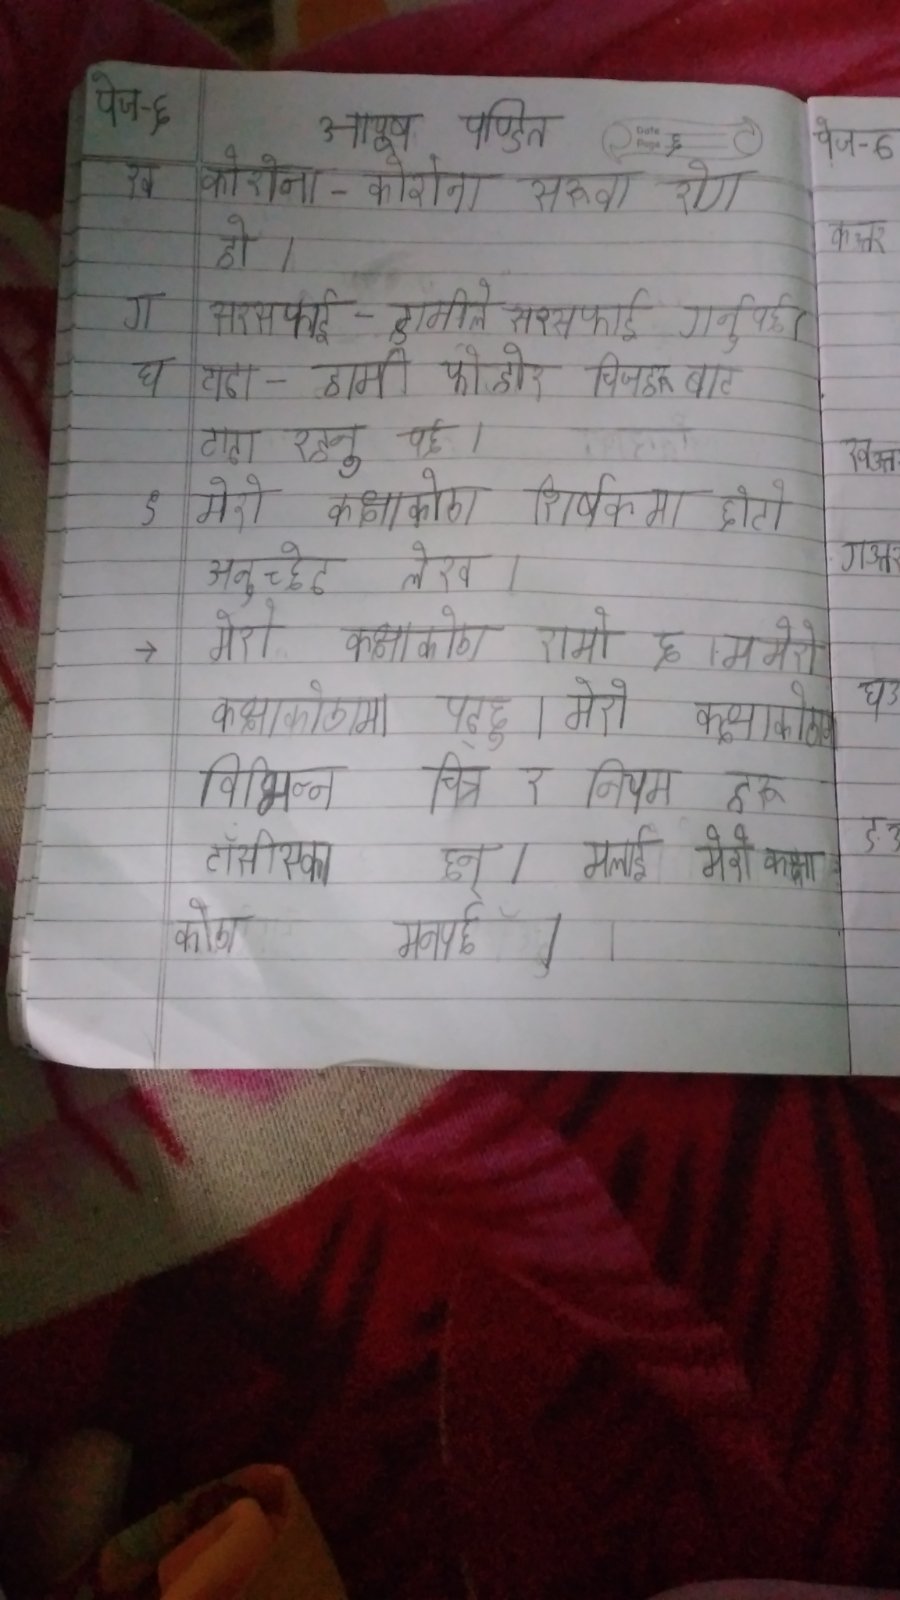 पेज-६
आयूष पण्डित
Date
Page ६
ख कोरोना - कोरोना सरूवा रोग
हो ।
ग सरसफाई - हामीले सरसफाई गर्नुपर्छ।
घ टाढा - हामी फोहोर चिजहरू बाट
टाढा रहनु पर्छ ।
ङ मेरो कक्षाकोठा शिर्षकमा छोटो
अनुच्छेद लेख ।
→ मेरो कक्षाकोठा रामो छ । म मेरो
कक्षाकोठामा पढ्छु । मेरो कक्षाकोठामा
विभिन्न चित्र र नियम हरू
टाँसीएका छन् । मलाई मेरो कक्षा
कोठा मनपर्छ ।
पेज-६
कउत्तर
खउत्तर
गउत्तर
घउ
ङ.उ